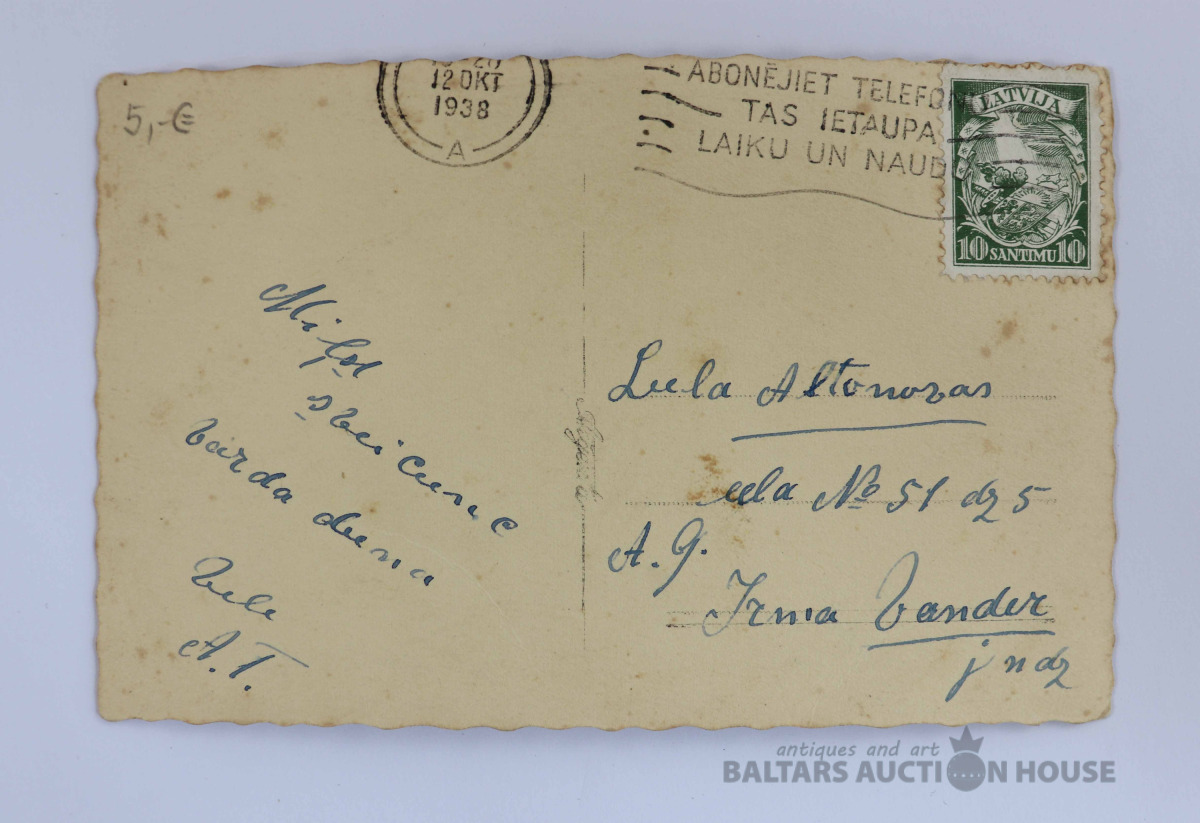 5,-€
12 OKT
1938
A
ABONĒJIET TELEFON
TAS IETAUPA
LAIKU UN NAUD
LATVIJA
10 SANTIMU 10
sveiciens
varda deena
A.T.
Leela Altonovas
eela № 51 dz 5
A. G.
Irma Vander
jndz
antiques and art
BALTARS AUCTION HOUSE